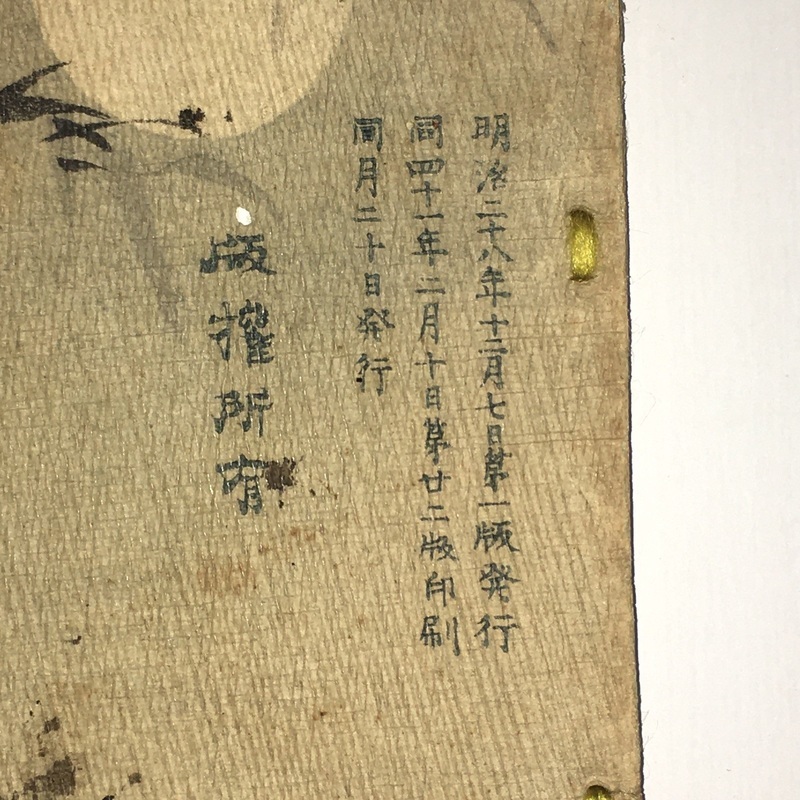 明治二十八年十二月七日第一版発行
同四十一年二月十日第廿二版印刷
同月二十日発行
版權所有